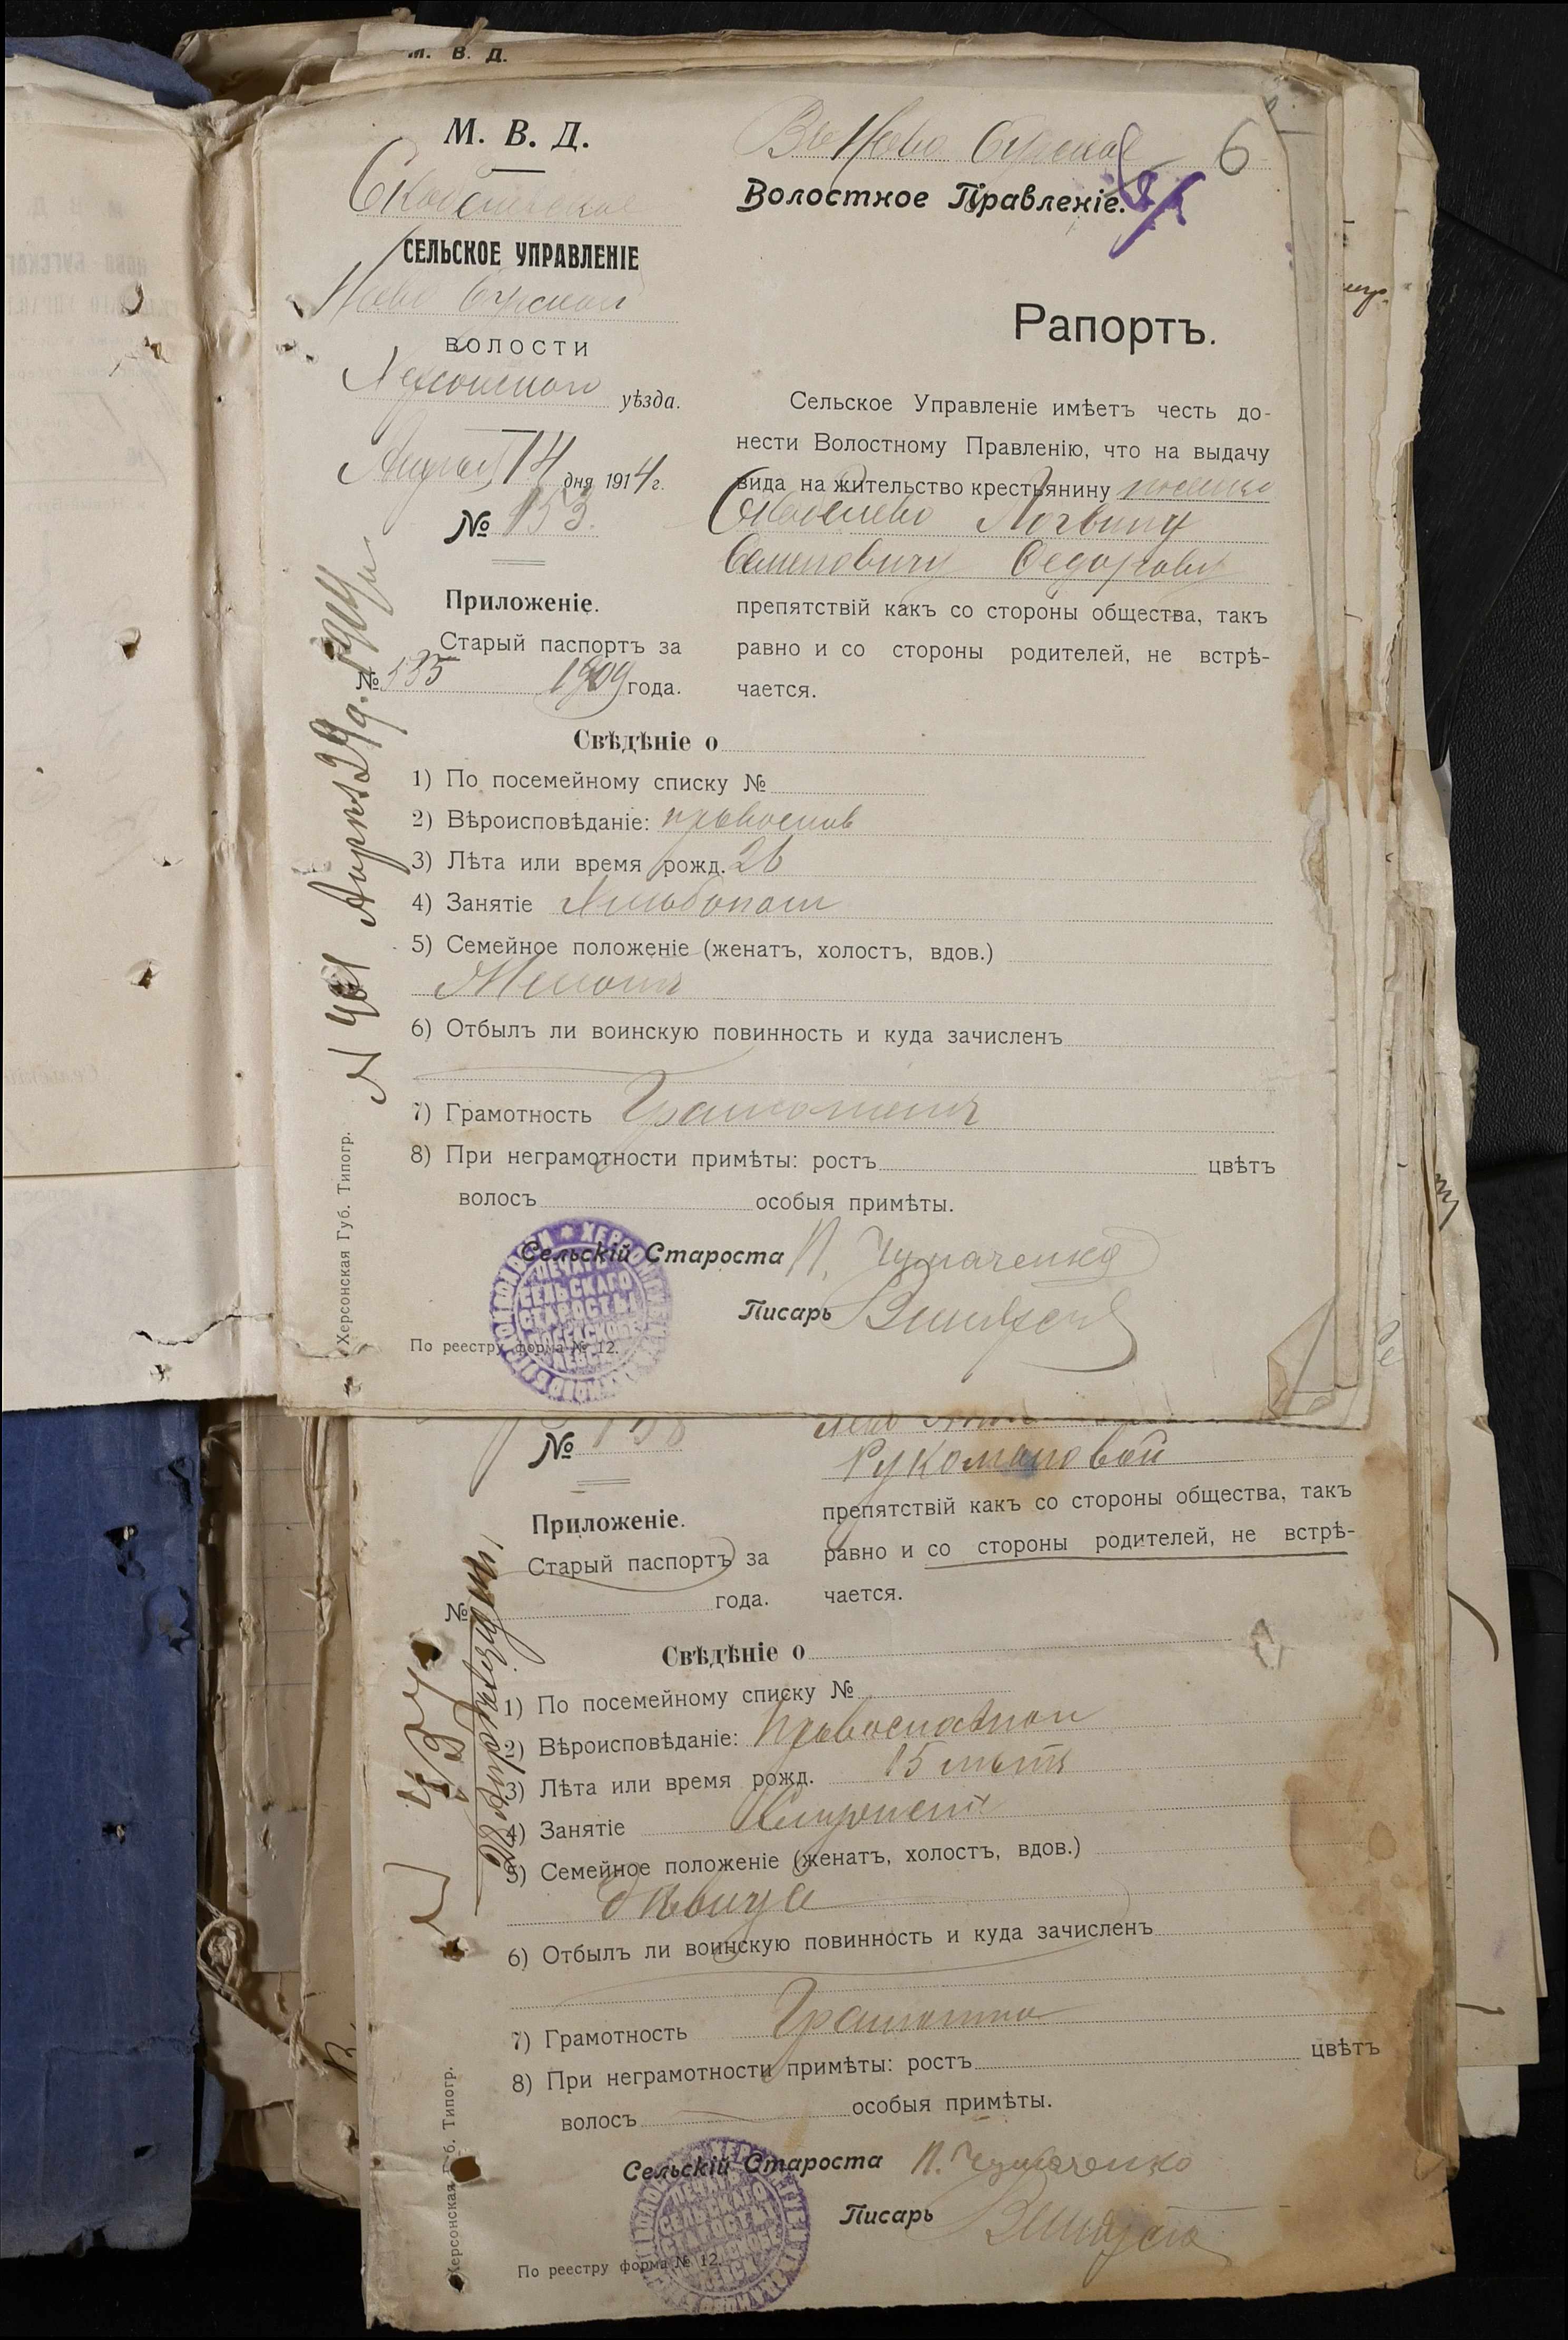 М. В. Д.
М. В. Д.
СЕЛЬСКОЕ УПРАВЛЕНІЕ
Ново Бугской
ВОЛОСТИ
Херсонскаго уѣзда.
Апрѣля 14 дня 1914 г.
№ 153.
Приложеніе.
Старый паспортъ за
№ 535 1909 года.
Въ Ново Бугское 6
Волостное Правленіе.
Рапортъ.
Сельское Управленіе имѣетъ честь до-
нести Волостному Правленію, что на выдачу
вида на жительство крестьянину
Логвину
Семеновичу Федорову
препятствій какъ со стороны общества, такъ
равно и со стороны родителей, не встрѣ-
чается.
Свѣдѣніе о
1) По посемейному списку №
2) Вѣроисповѣданіе: православ
3) Лѣта или время рожд. 26
4) Занятіе Хлѣбопаш
5) Семейное положеніе (женатъ, холостъ, вдов.)
Женатъ
6) Отбылъ ли воинскую повинность и куда зачисленъ
7) Грамотность Грамотенъ
8) При неграмотности примѣты: ростъ цвѣтъ
волосъ особыя примѣты.
Сельскій Староста П. Чумаченко
Писарь
По реестру форма № 12.
Херсонская Губ. Типогр.
№ 158
Рукомановой
Приложеніе.
Старый паспортъ за
№ года.
препятствій какъ со стороны общества, такъ
равно и со стороны родителей, не встрѣ-
чается.
Свѣдѣніе о
1) По посемейному списку №
2) Вѣроисповѣданіе: Православной
3) Лѣта или время рожд. 15 лѣтъ
4) Занятіе
5) Семейное положеніе (женатъ, холостъ, вдов.)
дѣвица
6) Отбылъ ли воинскую повинность и куда зачисленъ
7) Грамотность Грамотна
8) При неграмотности примѣты: ростъ цвѣтъ
волосъ особыя примѣты.
Сельскій Староста П. Чумаченко
Писарь
По реестру форма № 12.
Херсонская Губ. Типогр.